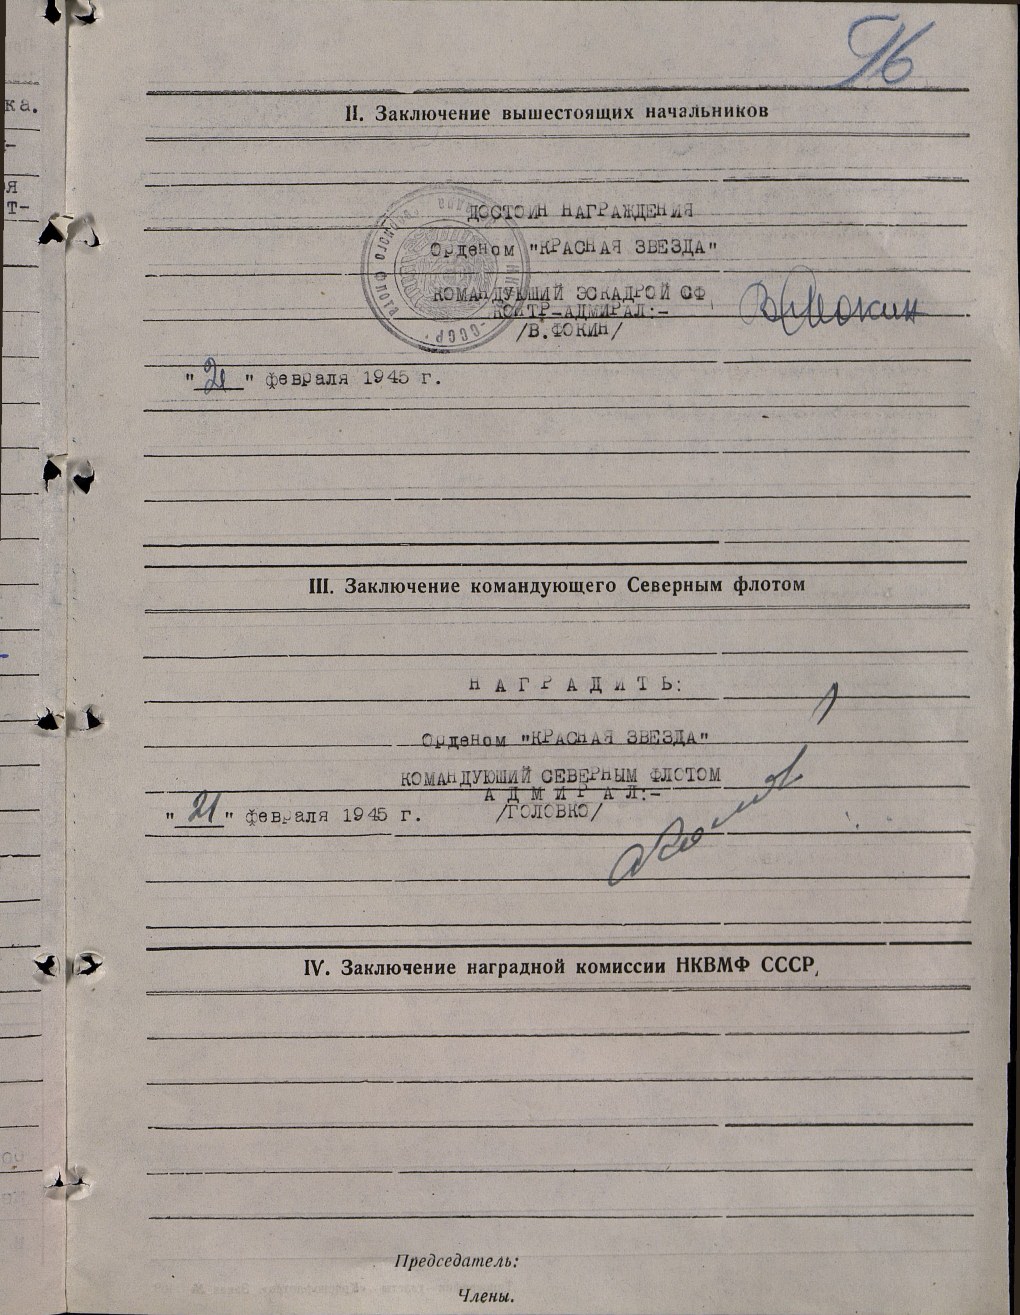 96
II. Заключение вышестоящих начальников
ДОСТОИН НАГРАЖДЕНИЯ
Орденом "КРАСНАЯ ЗВЕЗДА"
КОМАНДУЮЩИЙ ЭСКАДРОЙ СФ
КОНТР-АДМИРАЛ:-
/В.ФОКИН/
ВФокин
"21" февраля 1945 г.
III. Заключение командующего Северным флотом
Н А Г Р А Д И Т Ь:
Орденом "КРАСНАЯ ЗВЕЗДА"
КОМАНДУЮЩИЙ СЕВЕРНЫМ ФЛОТОМ
А Д М И Р А Л:-
"21" февраля 1945 г. /ГОЛОВКО/
IV. Заключение наградной комиссии НКВМФ СССР
Председатель:
Члены.